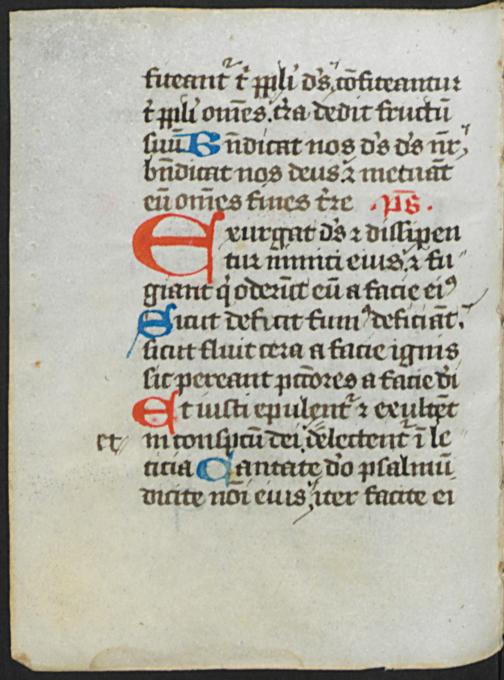 fiteant͛ t͛ ppl̄i d̄s, cōfiteantur
t͛ ppl̄i om̄es, t̄ra dedit fructū
suū Bn̄dicat nos d̄s d̄s nr̄,
bn̄dicat nos deus ⁊ metuāt
eū om̄es fines t̄re . ps̄ .
Exurgat d̄s ⁊ dissipen
tur inimici eius, ⁊ fu
giant q̇ oderūt eū a facie eiꝰ
Sicut deficit fumꝰ deficiāt,
sicut fluit cera a facie ignis
sic pereant pc̄cores a facie d̄i
Et iusti epulent͛ ⁊ exultēt
et in conspc̄tu dei, delectent͛ ī le
ticia Cantate d̄o psalmū
dicite nōi eius, iter facite ei